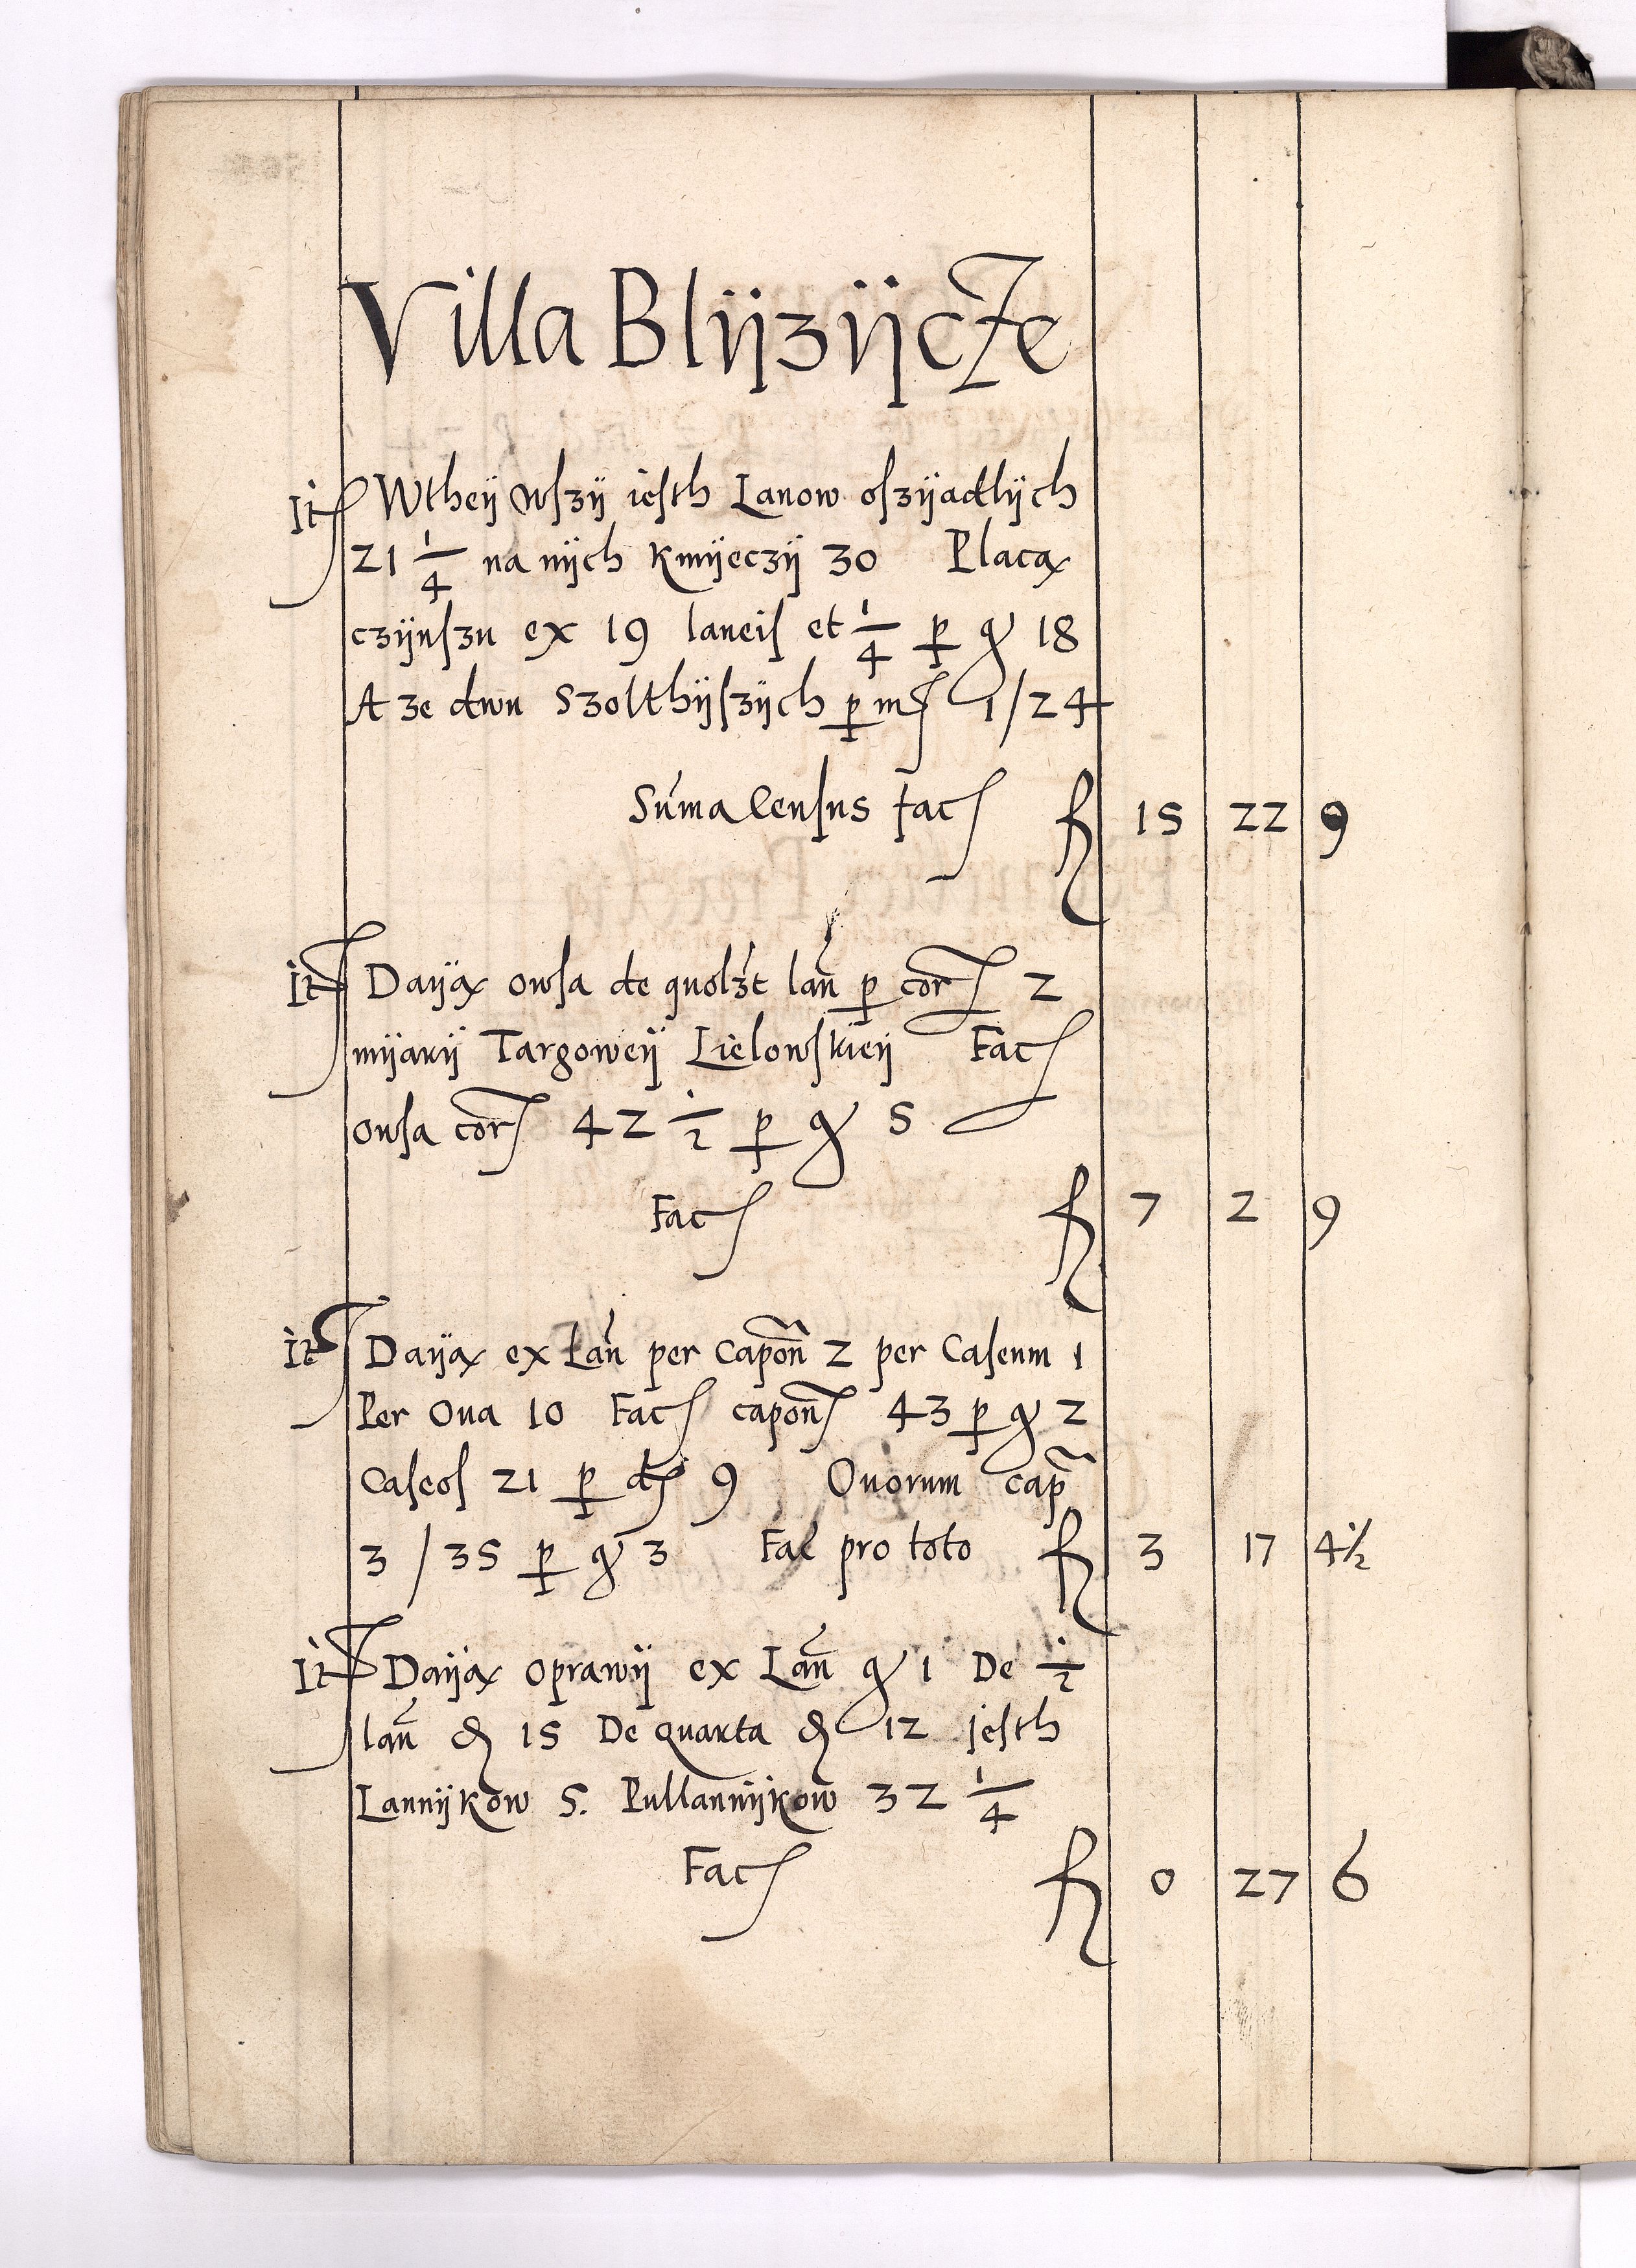 Villa Blijzijcze
It Wtheij wszij iesth Lanow oszijadlijch
21 1/4 na nijch kmijeczij 30 Placą
czijnszu ex 19 laneis et 1/4 p gr 18
A ze dwu Szolthijszijch p mr 1/24
Sum̃a Census fac fl 15 22 9
It Daiją owsa de quolzt lan̄ p cor 2
mijarij Targoweij Lielowskieij Fac
owsa cor 42 1/2 p gr 5
Fac fl 7 2 9
It Daiją ex Lan̄ per Capon̄ 2 per Caseum 1
Per Oua 10 Fac capon 43 p gr 2
Caseos 21 p d 9 Ouorum cap̄
3/35 p gr 3 Fac pro toto fl 3 17 4 1/2
It Daiją oprawij ex Lan̄ gr 1 De 1/2
lan̄ d 15 De quarta d 12 jesth
Lannijkow 5. Pullannijkow 32 1/4
Fac fl 0 27 6